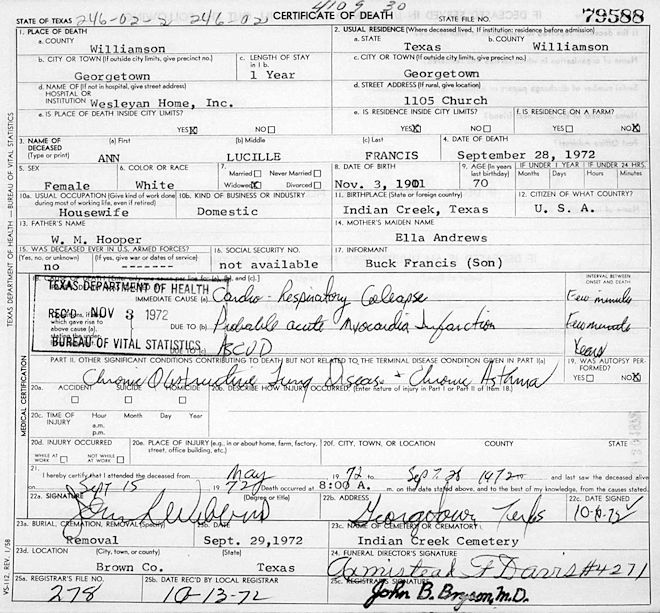 4109 30
STATE OF TEXAS 246-02-2 246-02 CERTIFICATE OF DEATH STATE FILE NO. 79588
1. PLACE OF DEATH
a. COUNTY
Williamson
2. USUAL RESIDENCE (Where deceased lived. If institution: residence before admission)
a. STATE
Texas
b. COUNTY
Williamson
b. CITY OR TOWN (If outside city limits, give precinct no.)
Georgetown
c. LENGTH OF STAY in 1 b.
1 Year
c. CITY OR TOWN (If outside city limits, give precinct no.)
Georgetown
d. NAME OF (If not in hospital, give street address)
HOSPITAL OR
INSTITUTION Wesleyan Home, Inc.
d. STREET ADDRESS (If rural, give location)
1105 Church
e. IS PLACE OF DEATH INSIDE CITY LIMITS?
YES X NO
e. IS RESIDENCE INSIDE CITY LIMITS?
YES X NO
f. IS RESIDENCE ON A FARM?
YES NO X
3. NAME OF DECEASED (Type or print)
(a) First
ANN
(b) Middle
LUCILLE
(c) Last
FRANCIS
4. DATE OF DEATH
September 28, 1972
5. SEX
Female
6. COLOR OR RACE
White
7.
Married Never Married
Widowed X Divorced
8. DATE OF BIRTH
Nov. 3, 1901
9. AGE (In years last birthday)
70
IF UNDER 1 YEAR
Months Days
IF UNDER 24 HRS.
Hours Minutes
10a. USUAL OCCUPATION (Give kind of work done during most of working life, even if retired)
Housewife
10b. KIND OF BUSINESS OR INDUSTRY
Domestic
11. BIRTHPLACE (State or foreign country)
Indian Creek, Texas
12. CITIZEN OF WHAT COUNTRY?
U. S. A.
13. FATHER'S NAME
W. M. Hooper
14. MOTHER'S MAIDEN NAME
Ella Andrews
15. WAS DECEASED EVER IN U.S. ARMED FORCES?
(Yes, no, or unknown) (If yes, give war or dates of service)
no -------
16. SOCIAL SECURITY NO.
not available
17. INFORMANT
Buck Francis (Son)
TEXAS DEPARTMENT OF HEALTH
REC'D NOV 3 1972
BUREAU OF VITAL STATISTICS
INTERVAL BETWEEN ONSET AND DEATH
IMMEDIATE CAUSE (a) Cardio-Respiratory Collapse Few minute
which gave rise to above cause (a).
DUE TO (b) Probable acute Myocardia Infarction Few minute
ASCVD Years
PART II. OTHER SIGNIFICANT CONDITIONS CONTRIBUTING TO DEATH BUT NOT RELATED TO THE TERMINAL DISEASE CONDITION GIVEN IN PART I(a)
Chronic Obstructive Lung Disease + Chronic Asthma
19. WAS AUTOPSY PERFORMED?
YES NO X
20a. ACCIDENT SUICIDE HOMICIDE
20b. DESCRIBE HOW INJURY OCCURRED. (Enter nature of injury in Part I or Part II of Item 18.)
20c. TIME OF INJURY
Hour Month Day Year
a.m.
p.m.
20d. INJURY OCCURRED
WHILE AT WORK NOT WHILE AT WORK
20e. PLACE OF INJURY (e.g., in or about home, farm, factory, street, office building, etc.)
20f. CITY, TOWN, OR LOCATION COUNTY STATE
21.
I hereby certify that I attended the deceased from May 1972 to Sept 28 1972 and last saw the deceased alive
on Sept 15 1972 Death occurred at 8:00 A. m. on the date stated above, and to the best of my knowledge, from the causes stated.
22a. SIGNATURE (Degree or title)
22b. ADDRESS
Georgetown Texas
22c. DATE SIGNED
23a. BURIAL, CREMATION, REMOVAL (Specify)
Removal
23b. DATE
Sept. 29,1972
23c. NAME OF CEMETERY OR CREMATORY
Indian Creek Cemetery
23d. LOCATION (City, town, or county) (State)
Brown Co. Texas
24. FUNERAL DIRECTOR'S SIGNATURE
Armistead F Davis #4271
25a. REGISTRAR'S FILE NO.
278
25b. DATE REC'D BY LOCAL REGISTRAR
10-13-72
25c. REGISTRAR'S SIGNATURE
John B. Bryson, M.D.
TEXAS DEPARTMENT OF HEALTH — BUREAU OF VITAL STATISTICS
MEDICAL CERTIFICATION
VS-112, REV. 1/58